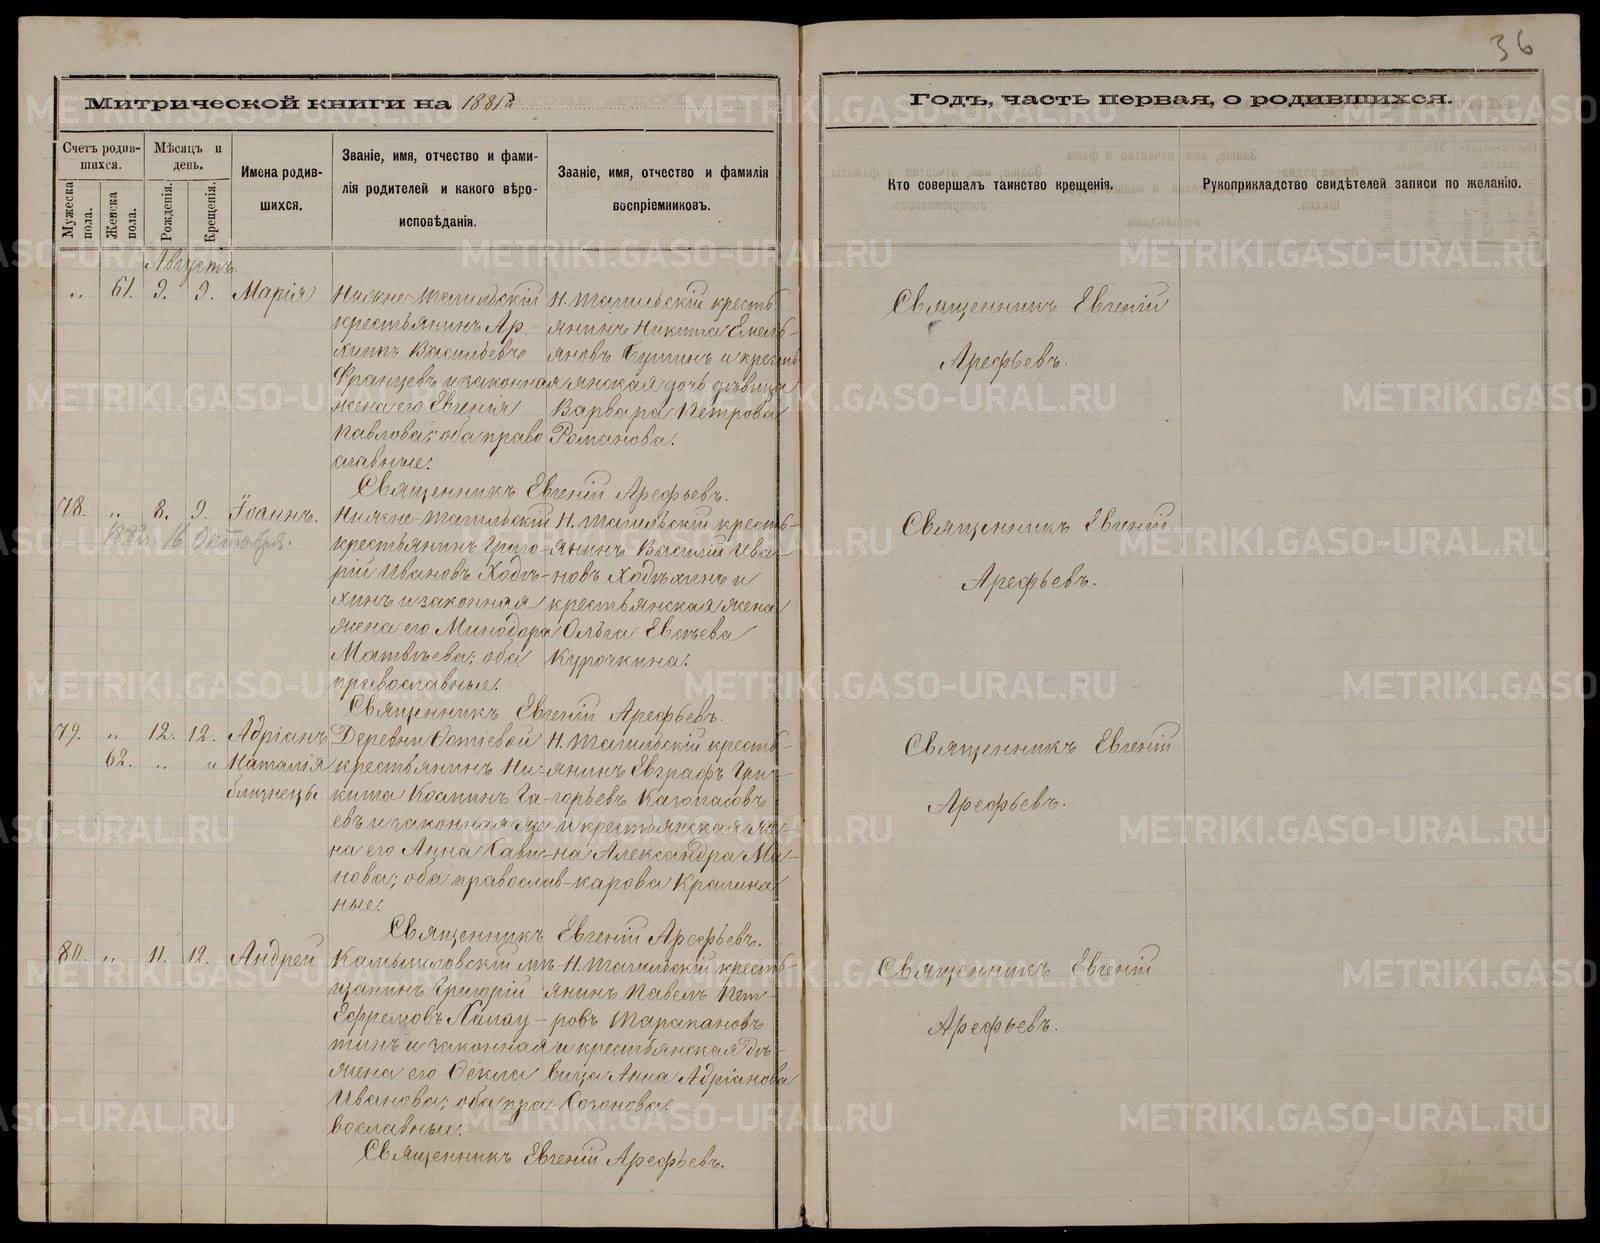 36
Митрической книги на 1881й
Годъ, часть первая, о родившихся.
Счетъ родив-
шихся.
Мужеска
пола.
Женска
пола.
Мѣсяцъ и
день.
Рожденія.
Крещенія.
Имена родив-
шихся.
Званіе, имя, отчество и фами-
лія родителей и какого вѣро-
исповѣданія.
Званіе, имя, отчество и фамилія
воспріемниковъ.
Кто совершалъ таинство крещенія.
Рукоприкладство свидѣтелей записи по желанію.
Августъ.
„ 61. 9. 9. Марія
Нижне-Тагильскій
крестьянинъ Ар-
хипъ Васильевъ
Францевъ и законная
жена его Евгенія
Павлова; оба право
славные.
Н. Тагильскій кресть
янинъ Никита Емель-
яновъ и кресть
янская дочь дѣвица
Варвара Петрова
Романова.
Священникъ Евгеній
Арефьевъ.
Священникъ Евгеній Арефьевъ.
78. „ 8. 9. Іоаннъ.
16 Октября.
Нижне-Тагильскій
крестьянинъ Григо-
рій Ивановъ Ходы-
хинъ и законная
жена его Минодора
Матвѣева; оба
православные.
Н. Тагильскій кресть-
янинъ Василій Ива-
новъ Ходыхинъ и
крестьянская жена
Ольга Евсѣева
Курочкина.
Священникъ Евгеній
Арефьевъ.
Священникъ Евгеній Арефьевъ.
79. „ 12. 12. Адріанъ
62. „ „ Наталія
близнецы
Деревни
крестьянинъ Ни-
кита Козминъ Га-
евъ и законная же-
на его Анна Сави-
нова; оба православ-
ные.
Н. Тагильскій кресть-
янинъ Евграфъ Гри-
горьевъ
и крестьянская же-
на Александра Ма-
карова
Священникъ Евгеній
Арефьевъ.
Священникъ Евгеній Арефьевъ.
80. „ 11. 12. Андрей
Камышловскій мѣ-
щанинъ Григорій
Ефремовъ
тинъ и законная
жена его Ѳекла
Иванова; оба пра
вославные.
Н. Тагильскій кресть-
янинъ Павелъ Пет-
ровъ Таракановъ
и крестьянская дѣ-
вица Анна Адріанова
Священникъ Евгеній
Арефьевъ.
Священникъ Евгеній Арефьевъ.
METRIKI.GASO-URAL.RU